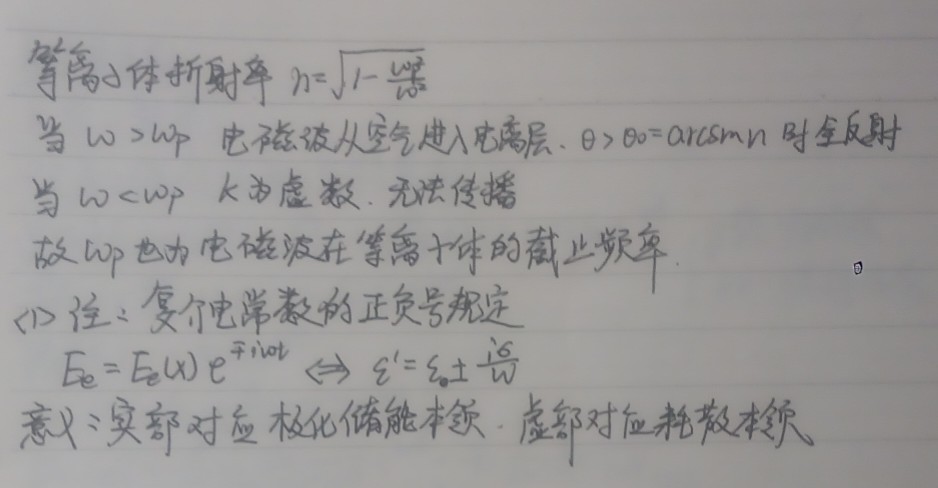 等离子体折射率 n=√(1-ωp²/ω²)
当 ω>ωp 电磁波从空气进入电离层. θ>θ₀=arcsin n 时全反射
当 ω<ωp k为虚数. 无法传播
故 ωp 也为电磁波在等离子体的截止频率.
<1> 注: 复介电常数的正负号规定
E_e = E_e(x) e^{∓iωt} ⇔ ε'=ε₀±iσ/ω
意义: 实部对应极化储能本领. 虚部对应耗散本领